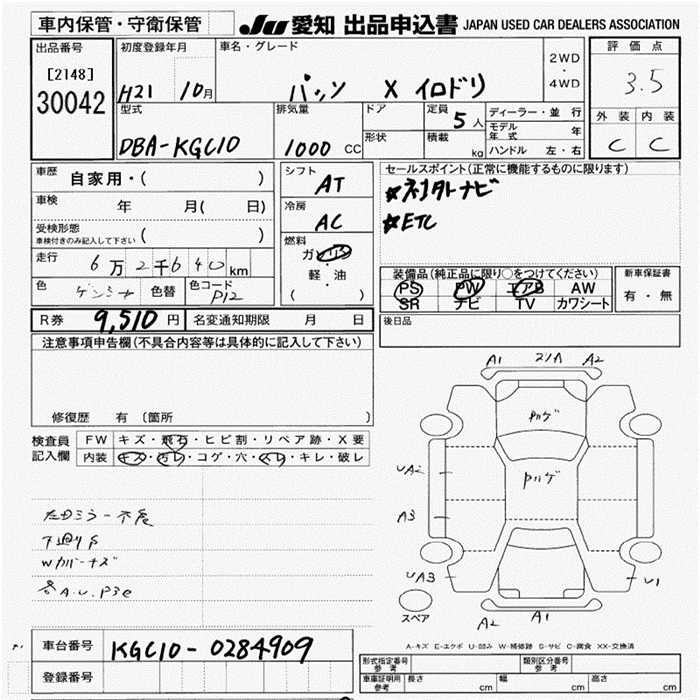 車内保管・守衛保管
JU 愛知 出品申込書 JAPAN USED CAR DEALERS ASSOCIATION
出品番号 初度登録年月 車名・グレード 2WD・4WD 評価点
[2148]
30042
H21 10月 パッソ X イロドリ 3.5
型式 排気量 ドア 定員 5人 ディーラー・並行 外装 内装
モデル年式 年
DBA-KGC10 1000 CC 形状 積載 kg ハンドル 左・右 C C
車歴 自家用・( ) シフト AT セールスポイント(正常に機能するものに限ります)
車検 年 月( 日) 冷房 AC ★社外ナビ
★ETC
受検形態 ( )
車検付きのみ記入して下さい
燃料 ガソリン
軽・油
( )
走行 6万2千640km
装備品(純正品に限り○をつけてください) 新車保証書
PS PW エアB AW 有・無
SR ナビ TV カワシート
色 色替 色コード P12
R券 9,510円 名変通知期限 月 日 後日品
注意事項申告欄(不具合内容等は具体的に記入して下さい)
修復歴 有 〔箇所 〕
検査員記入欄 FW キズ・飛石・ヒビ割・リペア跡・X要
内装 キズ・汚レ・コゲ・穴・スレ・キレ・破レ
A1 21A A2
Pハゲ
UA2
Pハゲ
A3
UA3
U1
A2 A1
スペア
左ドミラー不良
下廻りS
Wカバーキズ
A-キズ E-エクボ U-凹み W-補修跡 S-サビ C-腐食 XX-交換済
車台番号 KGC10-0284909
登録番号
形式指定番号 参考 類別区分番号 参考
車庫証明用 参考 長さ cm 幅 cm 高さ cm